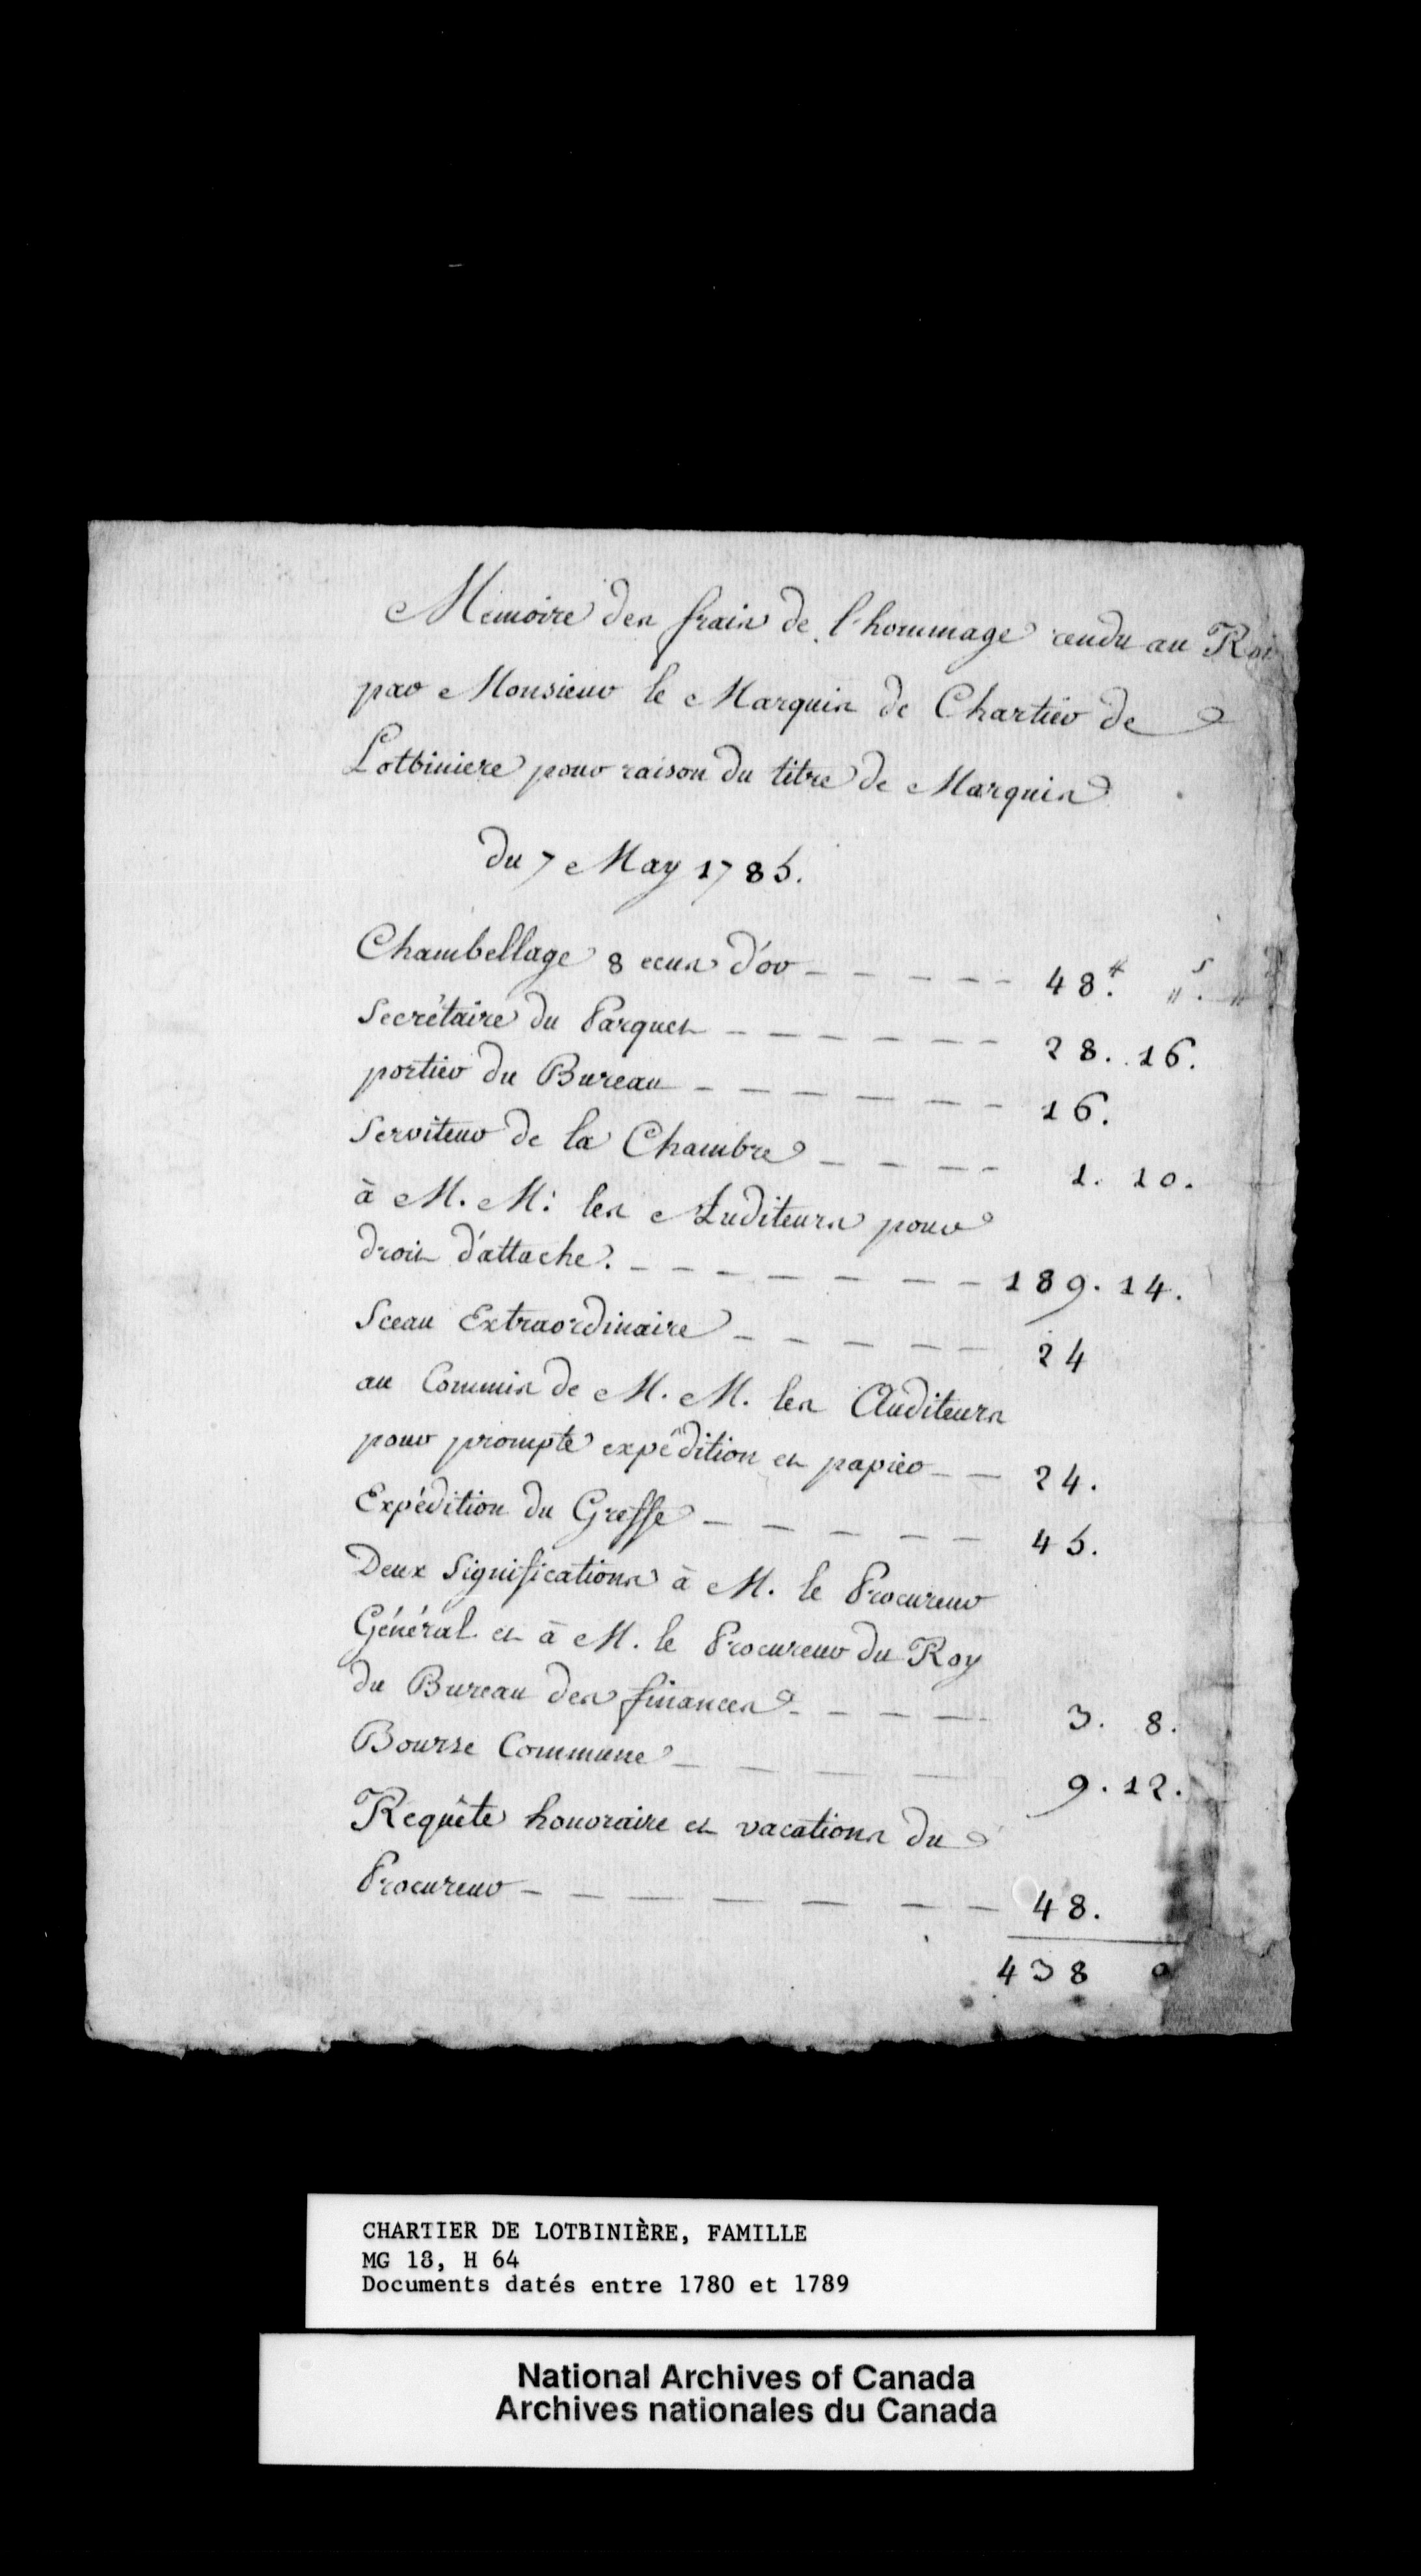 Mémoire des frais de l'hommage rendu au Roi
par Monsieur le Marquis de Chartier de
Lotbiniere pour raison du titre de Marquis
du 7 May 1785.
Chambellage 8 ecus d'or - - - - - 48.₶ ". s "
Secrétaire du Parquet - - - - - - 28. 16.
portier du Bureau - - - - - - - 16.
Serviteur de la Chambre - - - - 1. 10.
à M. M. les Auditeurs pour
droit d'attache. - - - - - - - - 189. 14.
Sceau Extraordinaire - - - - - - 24
au Commis de M. M. les Auditeurs
pour prompte expédition et papier - - 24.
Expédition du Greffe - - - - - 45.
Deux Significations à M. le Procureur
Général et à M. le Procureur du Roy
du Bureau des finances - - - - - 3. 8.
Bourse Commune - - - - - 9. 12.
Requête honoraire et vacations du
Procureur - - - - - - - 48.
438 0
CHARTIER DE LOTBINIÈRE, FAMILLE
MG 18, H 64
Documents datés entre 1780 et 1789
National Archives of Canada
Archives nationales du Canada